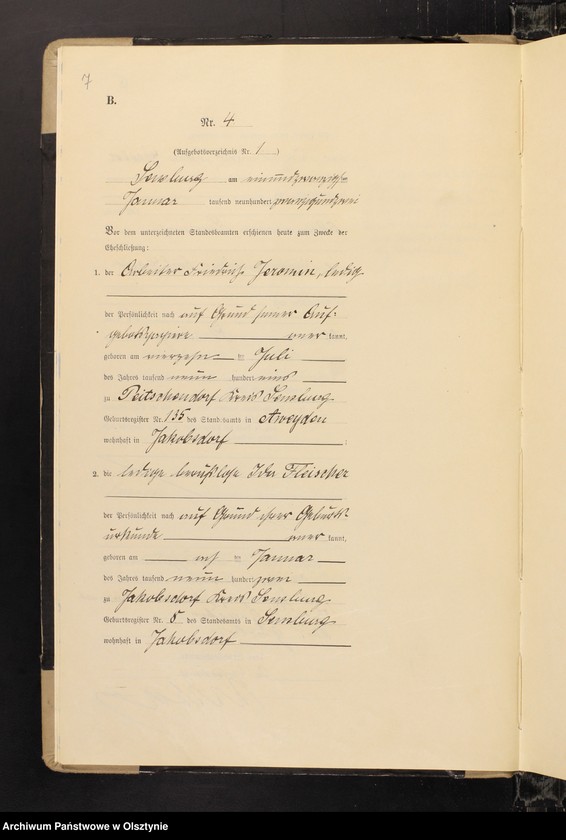 7
B.
Nr. 4
(Aufgebotsverzeichnis Nr. 1)
Sensburg am einundzwanzigsten
Januar tausend neunhundert zwanzigundzwei
Vor dem unterzeichneten Standesbeamten erschienen heute zum Zwecke der
Eheschließung:
1. der Arbeiter Friedrich Jeromin, ledig
der Persönlichkeit nach auf Grund seiner Auf-
gebotspapiere anerkannt,
geboren am vierzehn ten Juli
des Jahres tausend neun hundert eins
zu Peitschendorf Kreis Sensburg
Geburtsregister Nr. 135 des Standesamts in Aweyden
wohnhaft in Jakobsdorf ;
2. die ledige berufslose Ida Fleischer
der Persönlichkeit nach auf Grund ihrer Geburts-
urkunde anerkannt,
geboren am ten Januar
des Jahres tausend neun hundert zwei
zu Jakobsdorf Kreis Sensburg
Geburtsregister Nr. 5 des Standesamts in Sensburg
wohnhaft in Jakobsdorf
Archiwum Państwowe w Olsztynie